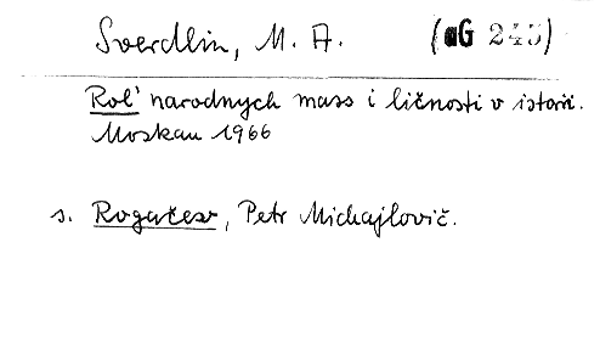 Sverdlin, M. A. (aG 245)
Rol' narodnych mass i ličnosti v istorii.
Moskau 1966
s. Rogačev, Petr Michajlovič.